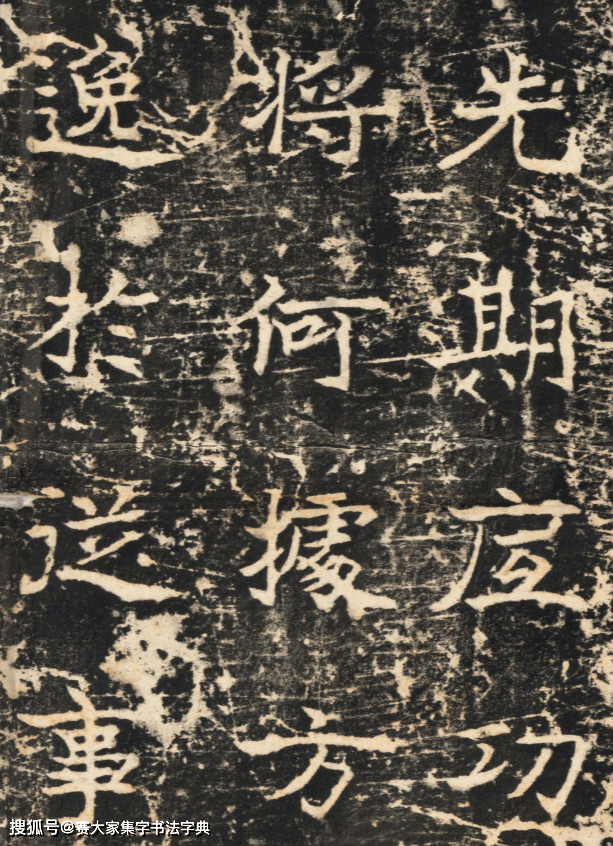 先期功
將何據方
逸於從事
搜狐号@赛大家集字书法字典